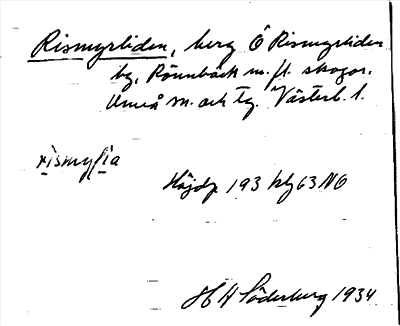 Rismyrliden, berg Ö Rismyrliden
by, Rönnbäck m. fl. skogar.
Umeå sn. och tg. Västerb. l.
rismylia
Höjdp 193 kbl 63 NO
H A Söderberg 1934